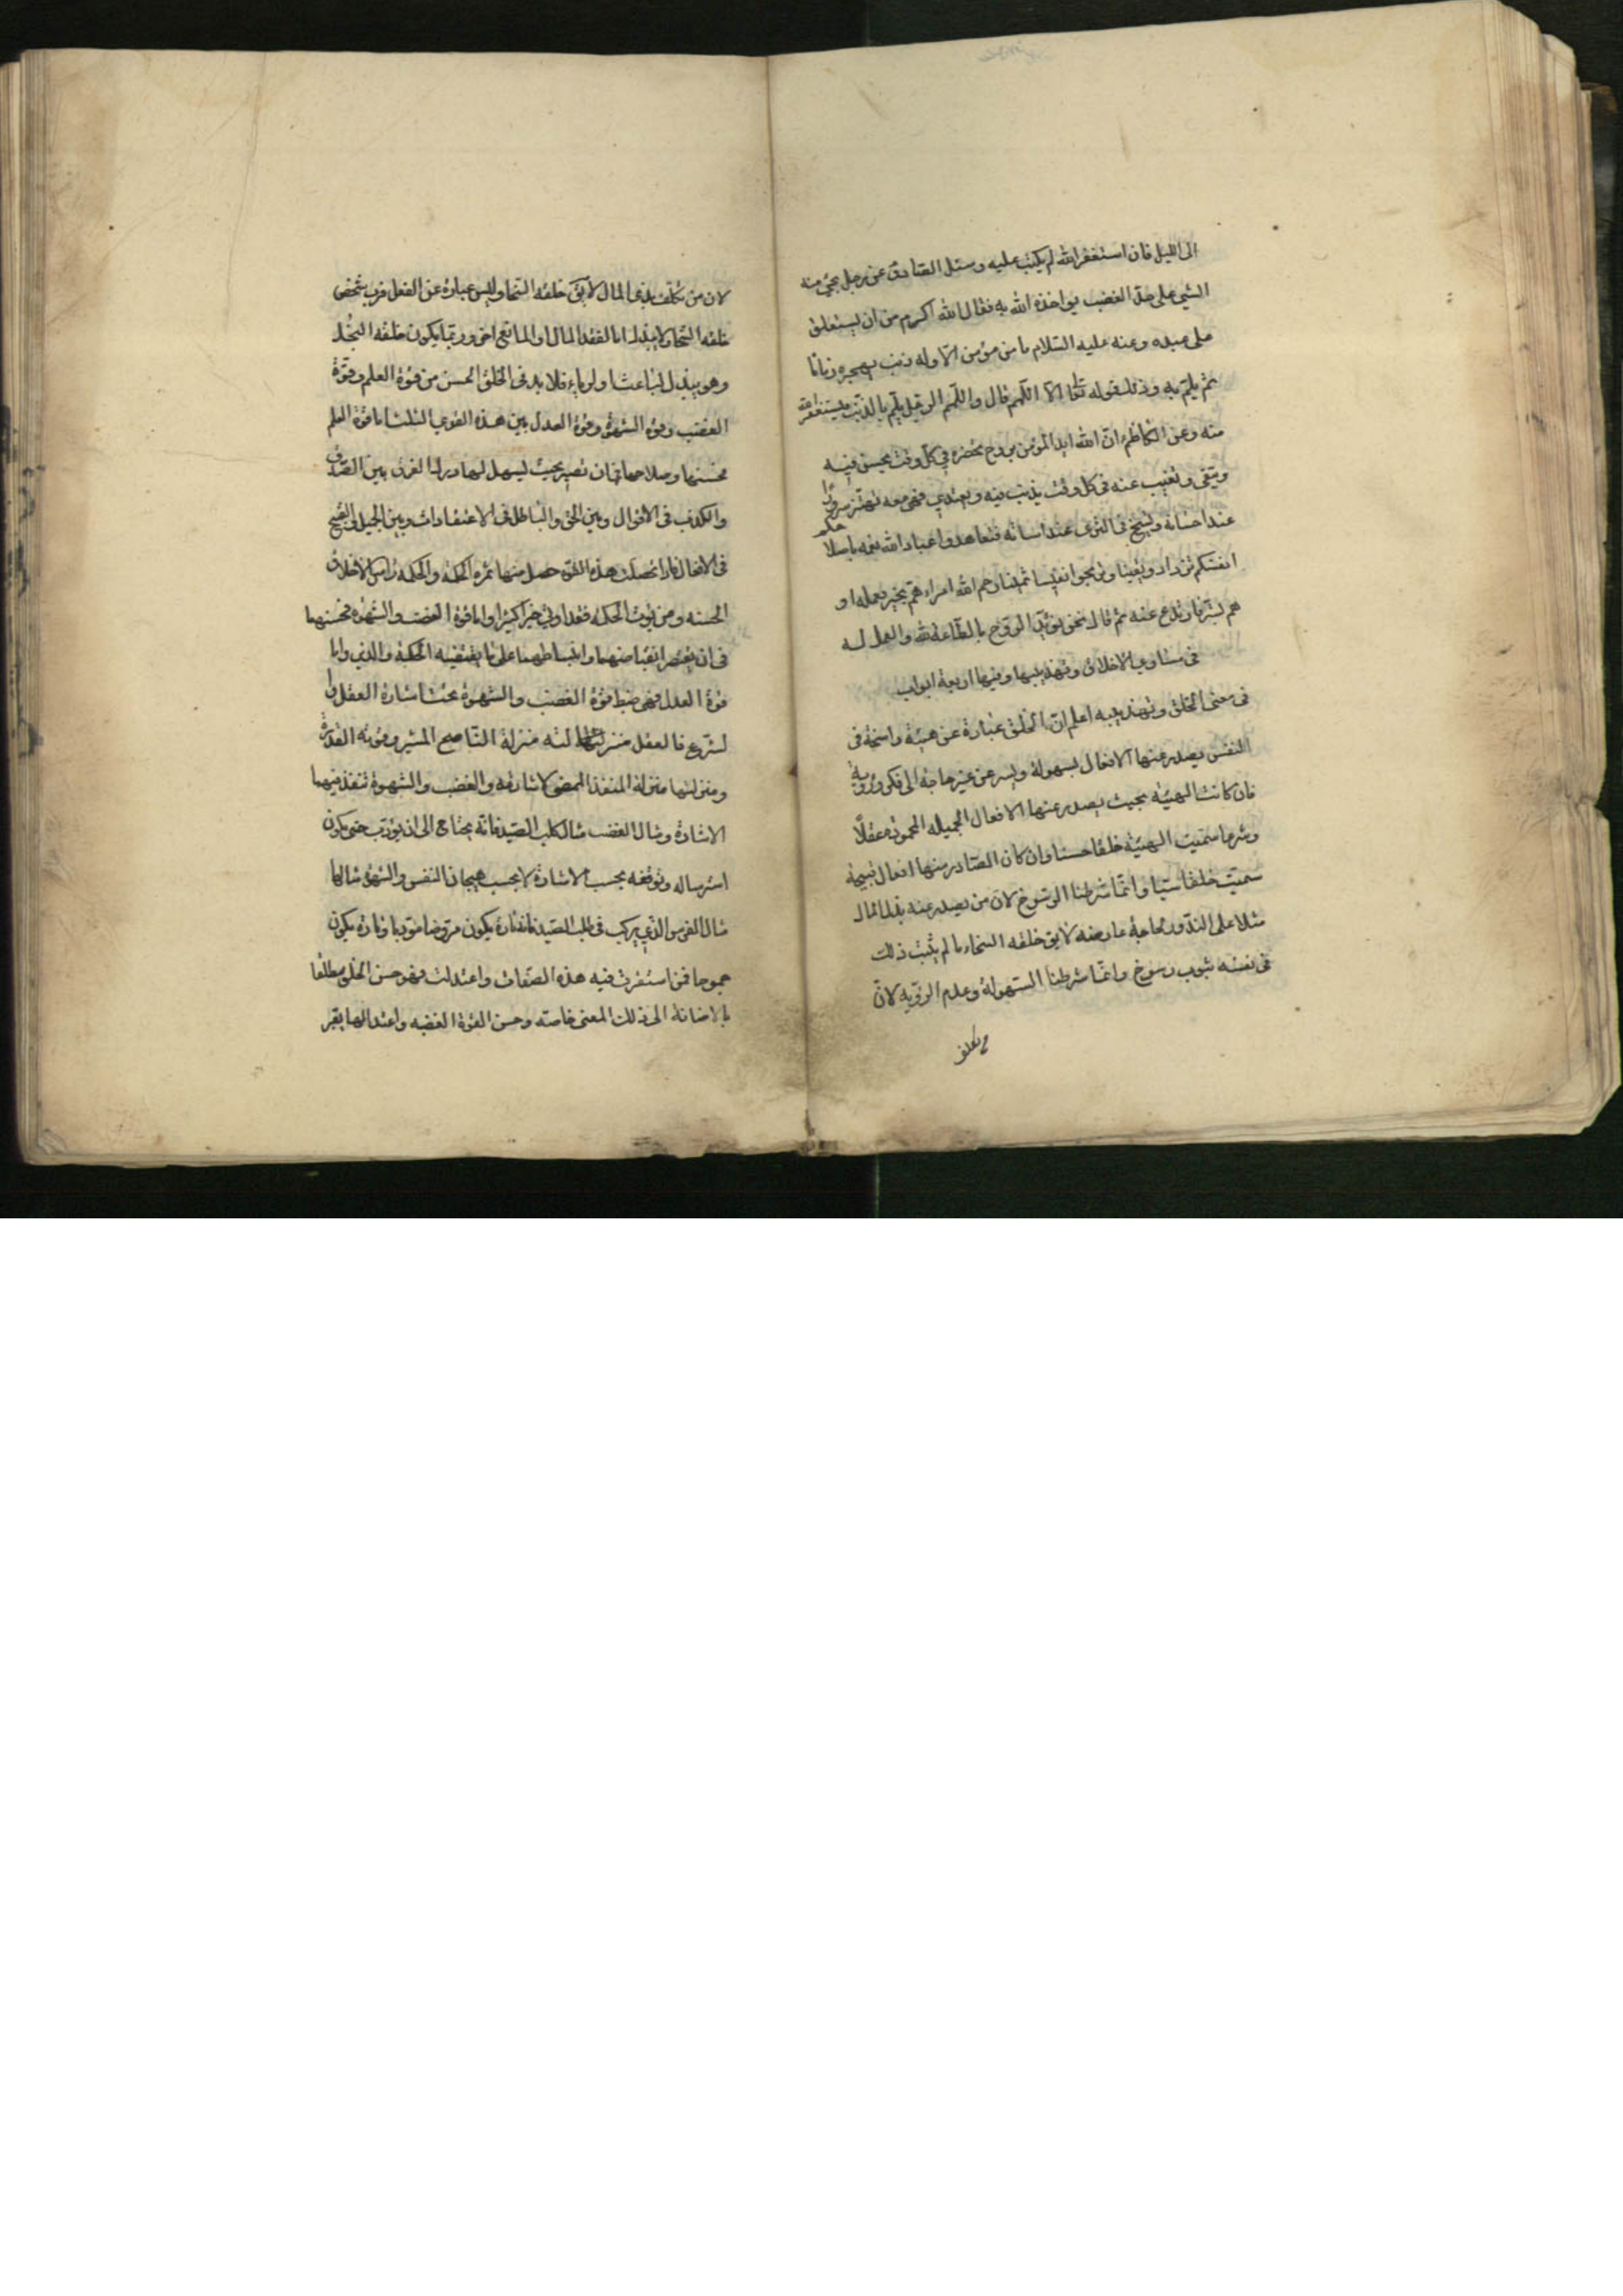 الى الليل فان استغفر الله لم يكتب عليه وسئل الصادق عن رجل يجئ منه
الشئ على حد الغضب يؤاخذه الله به فقال الله اكرم من ان يستغلق
على عبده وعنه عليه السلام ما من مؤمن الا وله ذنب يهجره زمانا
ثم يلم به وذلك قوله تعا الا اللمم قال واللمم الرجل يلم بالذنب فيستغفر الله
منه وعن الكاظم ان الله ايد المؤمن بروح تحضره في كل وقت يحسن فيه
ويتقى وتغيب عنه فى كل وقت يذنب فيه ويعتدي فهى معه تهتز سرورا
عند احسانه وتسيخ فى الثرى عند اسائته فتعاهدوا عباد الله نعمه باصلاحكم
انفسكم تزدادوا يقينا وتربحوا نفيسا ثمينا رحم الله امراء هم بخير فعمله او
هم بشر فارتدع عنه ثم قال نحن نؤيد الروح بالطاعة لله والعمل له
فى مساوي الاخلاق وتهذيبها وفيها اربعة ابواب
فى معنى الخلق وتهذيبه اعلم ان الخلق عبارة عن هيئة راسخة فى
النفس يصدر عنها الافعال بسهولة ويسر عن غير حاجة الى فكر وروية
فان كانت الهيئة بحيث يصدر عنها الافعال الجميلة المحمودة عقلا
وشرعا سميت الهيئة خلقا حسنا وان كان الصادر منها افعال قبيحة
سميت خلقا سيئا وانما شرطنا الرسوخ لان من يصدر عنه بذل المال
مثلا على الندور لحاجة عارضة لا يق خلقه السخاء ما لم يثبت ذلك
فى نفسه ثبوت رسوخ وانما شرطنا السهولة وعدم الروية لان
من تكلف
لان من تكلف بذل المال لا يق خلقه السخا وليس عبارة عن الفعل فرب شخص
خلقه السخا ولا يبذل اما لفقد المال او لمانع اخر وربما يكون خلقه البخل
وهو يبذل لباعث او لرياء فلا بد فى الخلق الحسن من قوة العلم وقوة
الغضب وقوة الشهوة وقوة العدل بين هذه القوي الثلث اما قوة العلم
فحسنها وصلاحها فى ان تصير بحيث يسهل لها درك الفرق بين الصدق
والكذب فى الاقوال وبين الحق والباطل فى الاعتقادات وبين الجميل والقبيح
فى الافعال فاذا حصلت هذه القوة حصل منها ثمرة الحكمة والحكمة راس الاخلاق
الحسنة ومن يؤت الحكمة فقد اوتي خيرا كثيرا واما قوة الغضب والشهوة فحسنهما
فى ان يقتصر انقباضهما وانبساطهما على ما يقتضيه الحكمة والدين واما
قوة العدل فهى ضبط قوة الغضب والشهوة تحت اشارة العقل وا
لشرع فالعقل منزلته منزلة الناصح المشير وقوته القدرة
ومنزلتها منزلة المنفذ الممضى لاشارته والغضب والشهوة تنفذ فيهما
الاشارة ومثال الغضب مثال كلب الصيد فانه يحتاج الى ان يؤدب حتى يكون
استرساله وتوقفه بحسب الاشارة لا بحسب هيجان النفس والشهوة مثالها
مثال الفرس الذي يركب فى طلب الصيد فانه تارة يكون مروضا مؤدبا وتارة يكون
جموحا فمن استقرت فيه هذه الصفات واعتدلت فهو حسن الخلق مطلقا
بالاضافة الى ذلك المعنى خاصته وحسن القوة الغضبه واعتدالها يعبر